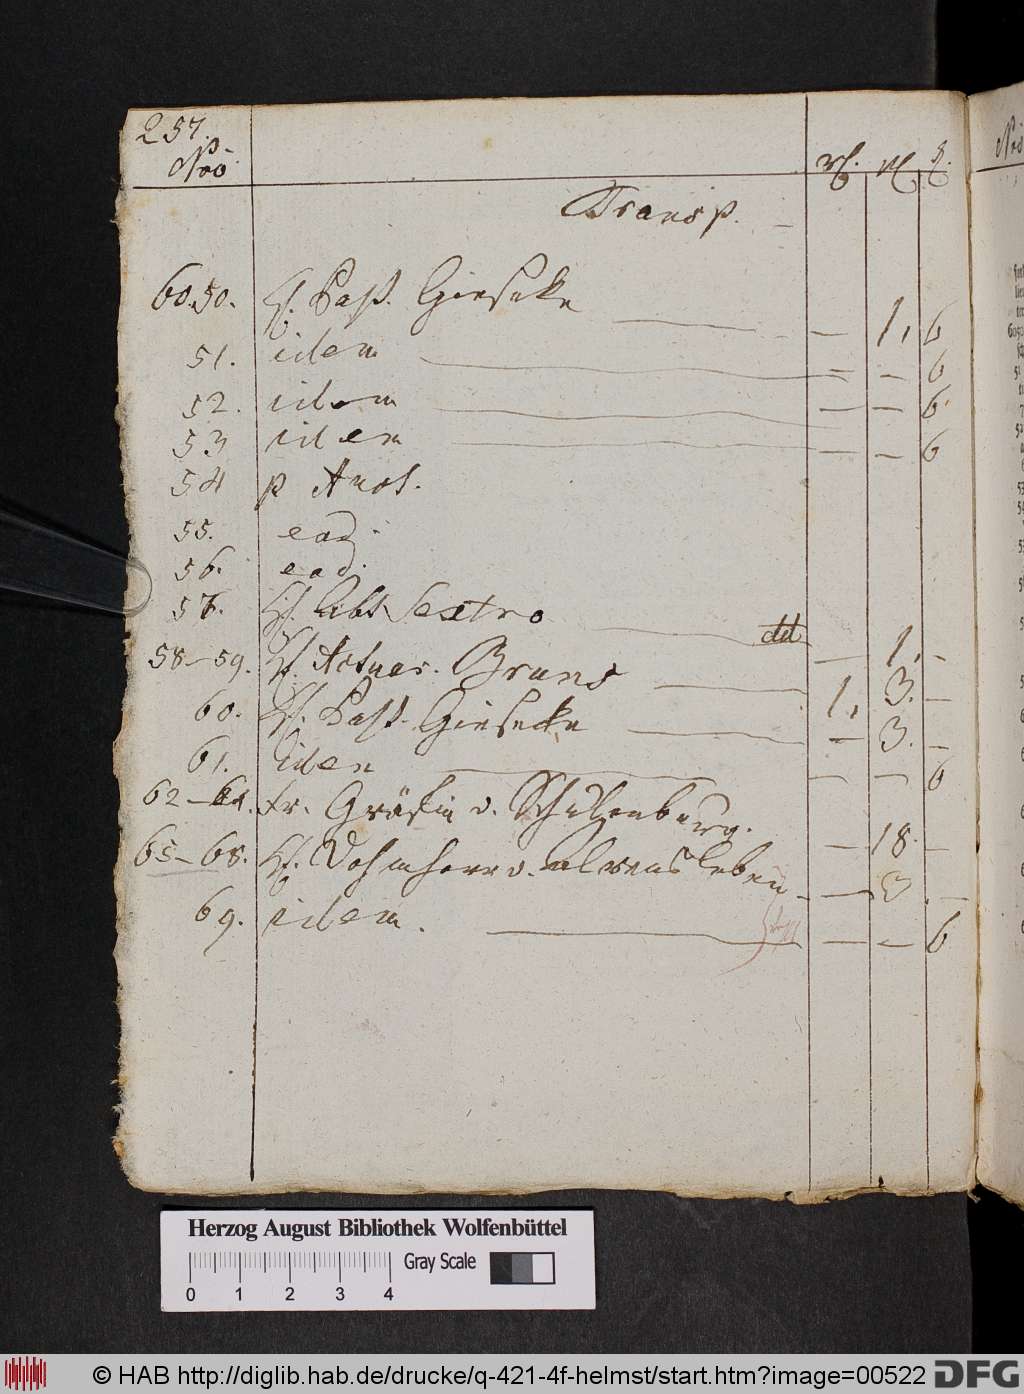 257.
Nro rf. gl. ₰.
Transp. –
60.50. H. Past. Gieseke — 1, 6
51. idem — — 6
52. idem — — 6.
53 idem — — 6
54 p Auct.
55. ead.
56. ead.
57. H. Abt Sextro dd — 1. –
58–59. H. Actuar. Bruns 1, 3. —
60. H. Past. Giesecke — 3. –
61. idem — — 6
62–64. Fr. Gräfin v. Schulenburg. — 18. –
65–68. H. Dohmherr v. Alvensleben — 3 . —
69. idem. — — 6
Herzog August Bibliothek Wolfenbüttel
Gray Scale
0 1 2 3 4
© HAB http://diglib.hab.de/drucke/q-421-4f-helmst/start.htm?image=00522 DFG